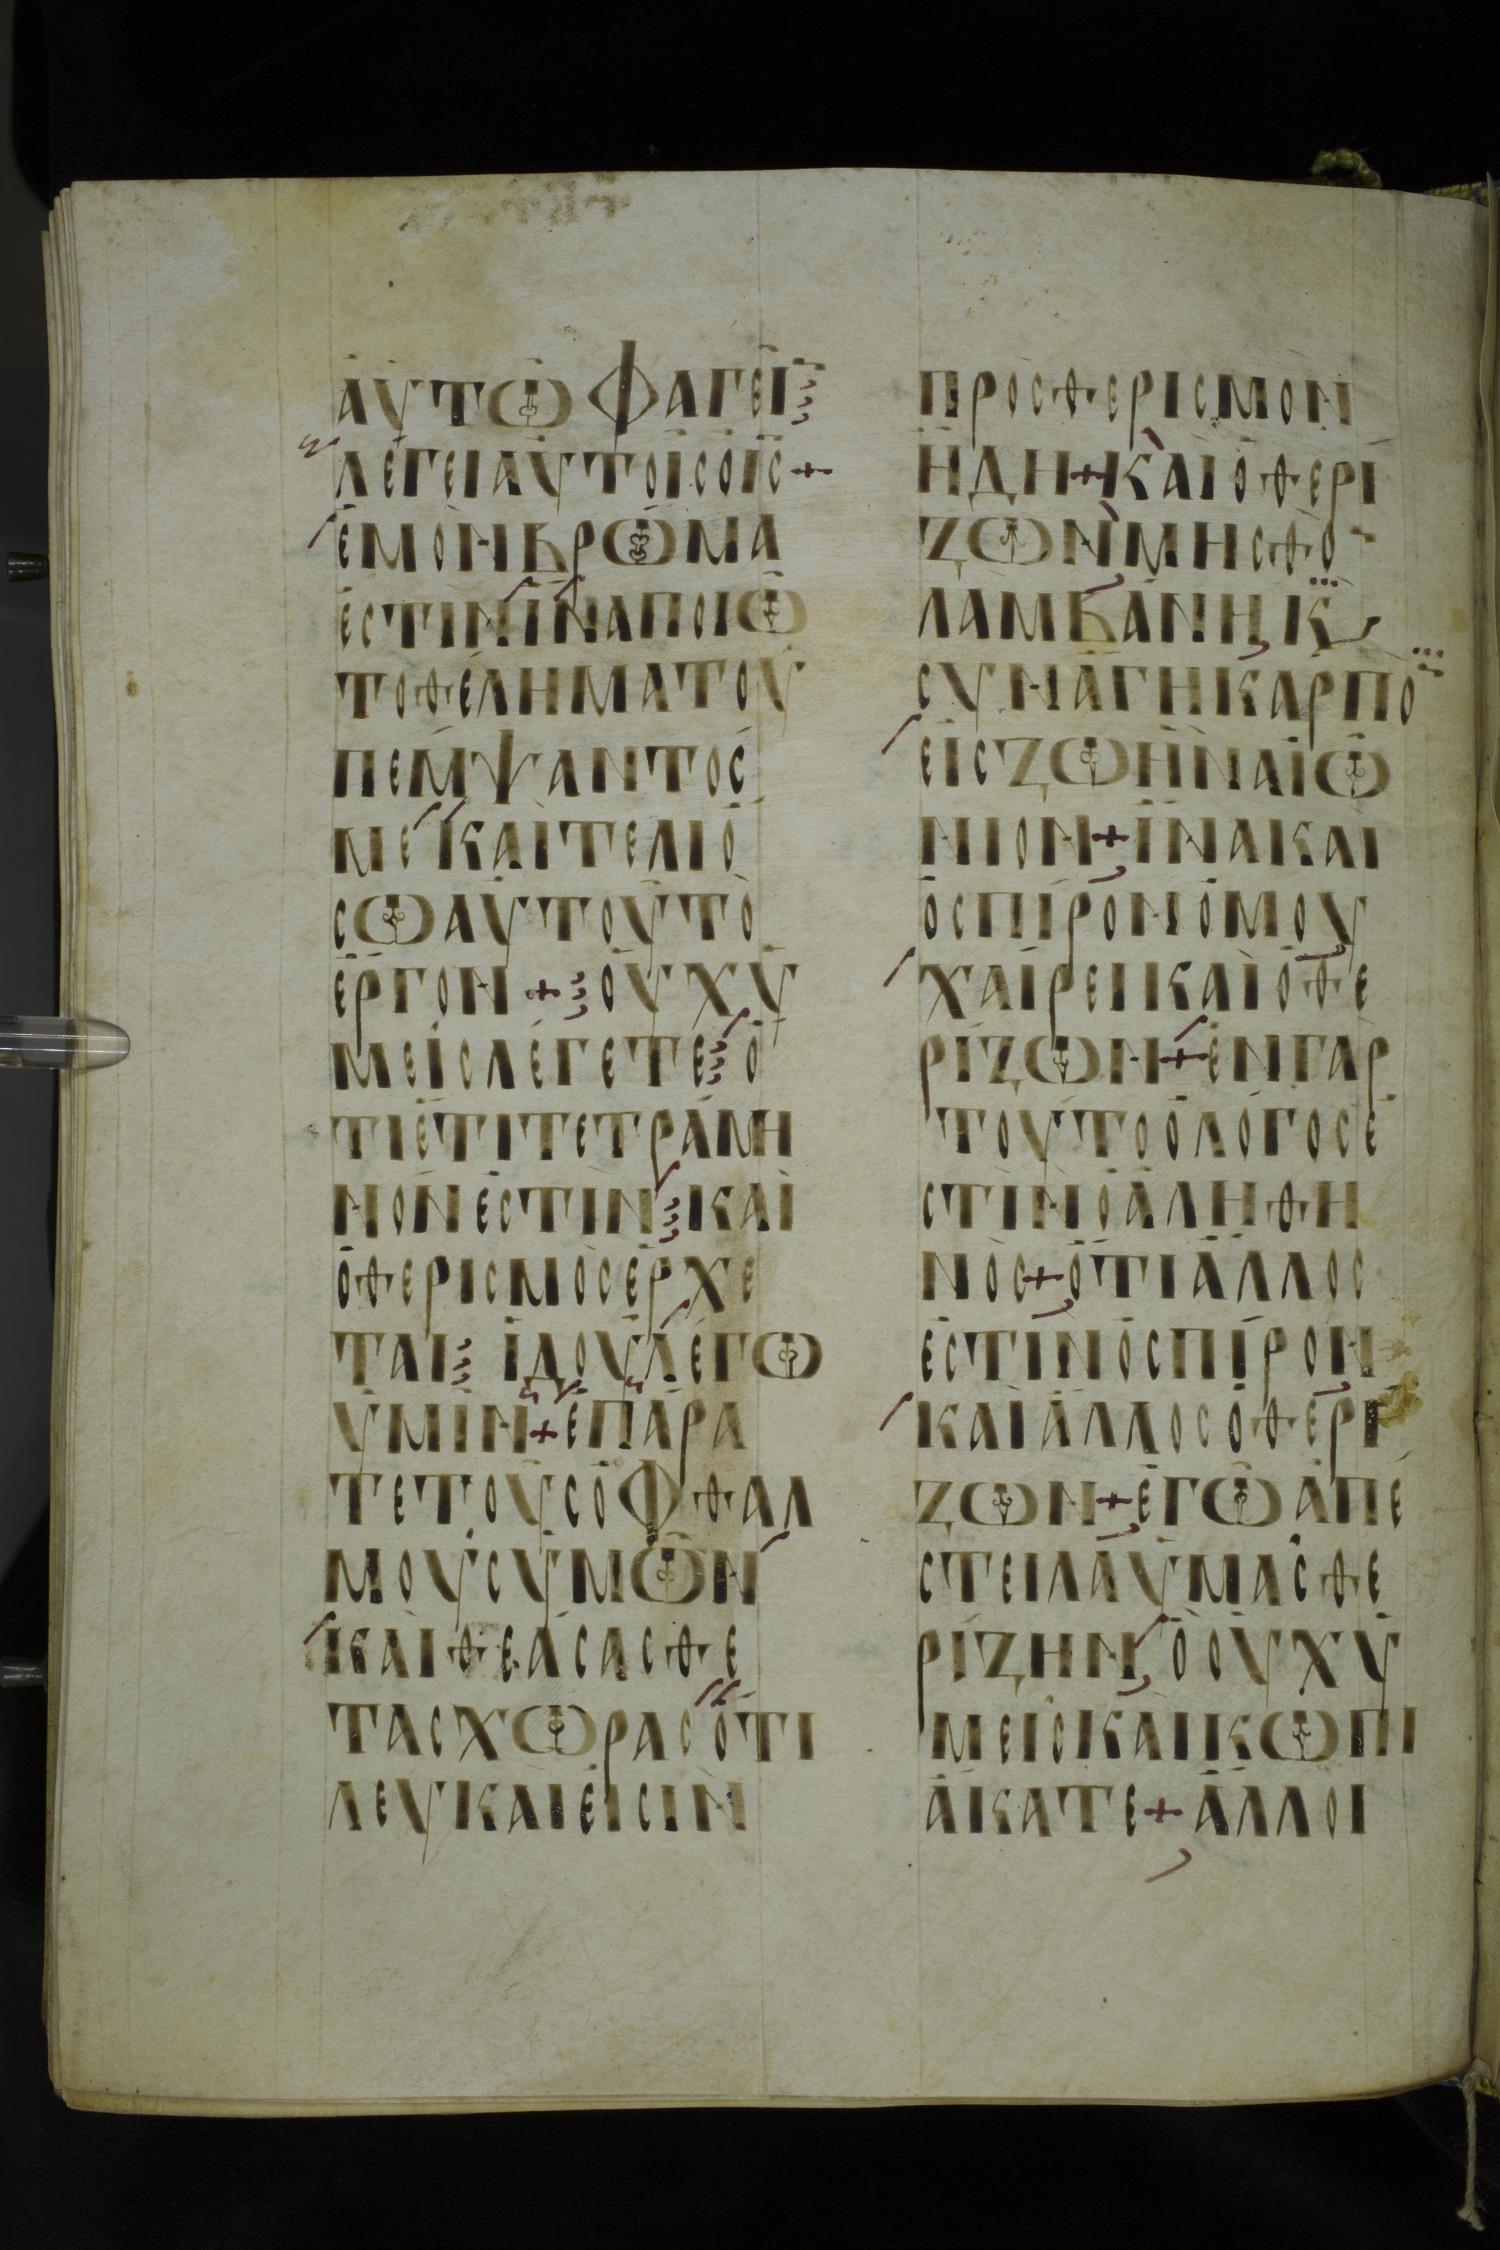 ΑΥΤΩΦΑΓΕΙ
ΛΕΓΕΙΑΥΤΟΙΣΟΙΣ+
ΕΜΟΝΒΡΩΜΑ
ΕΣΤΙΝΙΝΑΠΟΙΩ
ΤΟΘΕΛΗΜΑΤΟΥ
ΠΕΜΨΑΝΤΟΣ
ΜΕΚΑΙΤΕΛΙΟ
ΣΩΑΥΤΟΥΤΟ
ΕΡΓΟΝ+ΟΥΧΥ
ΜΕΙΣΛΕΓΕΤΕΟ
ΤΙΕΤΙΤΕΤΡΑΜΗ
ΝΟΝΕΣΤΙΝΚΑΙ
ΟΘΕΡΙΣΜΟΣΕΡΧΕ
ΤΑΙΙΔΟΥΛΕΓΩ
ΥΜΙΝ+ΕΠΑΡΑ
ΤΕΤΟΥΣΟΦΘΑΛ
ΜΟΥΣΥΜΩΝ
ΚΑΙΘΕΑΣΑΣΘΕ
ΤΑΣΧΩΡΑΣΟΤΙ
ΛΕΥΚΑΙΕΙΣΙΝ
ΠΡΟΣΘΕΡΙΣΜΟΝ
ΗΔΗ+ΚΑΙΟΘΕΡΙ
ΖΩΝΜΗΣΘΟ
ΛΑΜΒΑΝΗΚ
ΣΥΝΑΓΗΚΑΡΠΟ
ΕΙΣΖΩΗΝΑΙΩ
ΝΙΟΝ+ΙΝΑΚΑΙ
ΟΣΠΙΡΟΝΟΜΟΥ
ΧΑΙΡΕΙΚΑΙΟΘΕ
ΡΙΖΩΝ+ΕΝΓΑΡ
ΤΟΥΤΟΟΛΟΓΟΣΕ
ΣΤΙΝΟΑΛΗΘΗ
ΝΟΣ+ΟΤΙΑΛΛΟΣ
ΕΣΤΙΝΟΣΠΙΡΟΝ
ΚΑΙΑΛΛΟΣΟΘΕΡΙ
ΖΩΝ+ΕΓΩΑΠΕ
ΣΤΕΙΛΑΥΜΑΣΘΕ
ΡΙΖΗΝΟΟΥΧΥ
ΜΕΙΣΚΑΙΚΩΠΙ
ΑΚΑΤΕ+ΑΛΛΟΙ